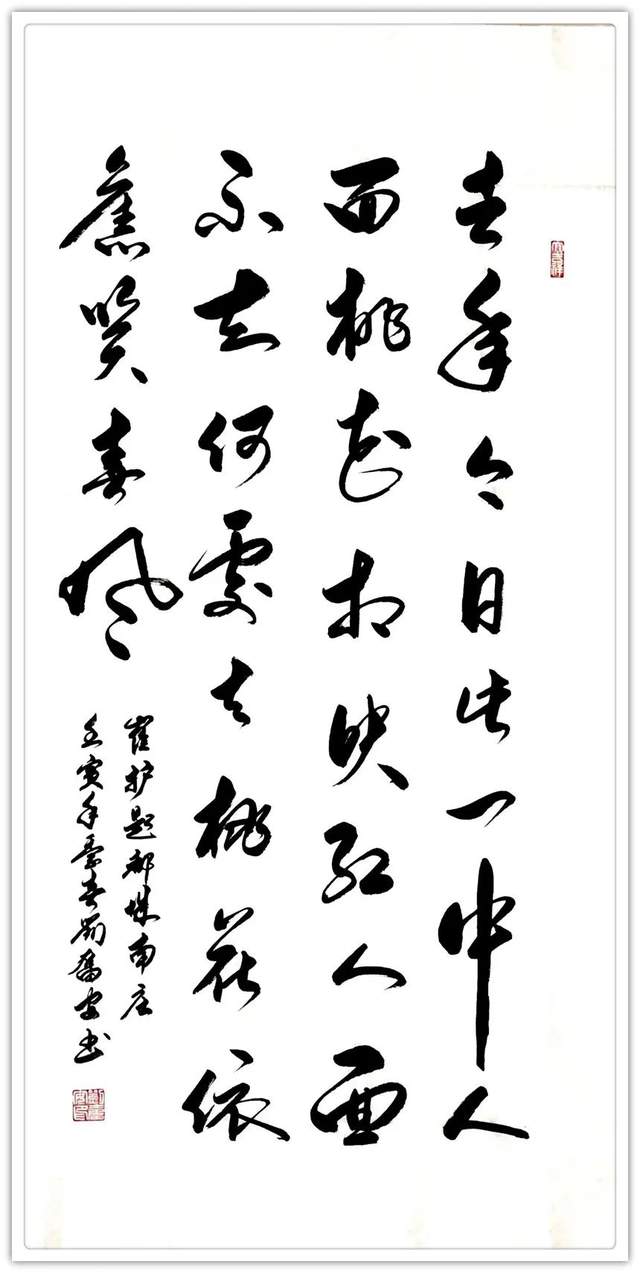 去年今日此门中人
面桃花相映红人面
不知何處去桃花依
舊笑春风
崔护题都城南庄
壬寅年春刘安书